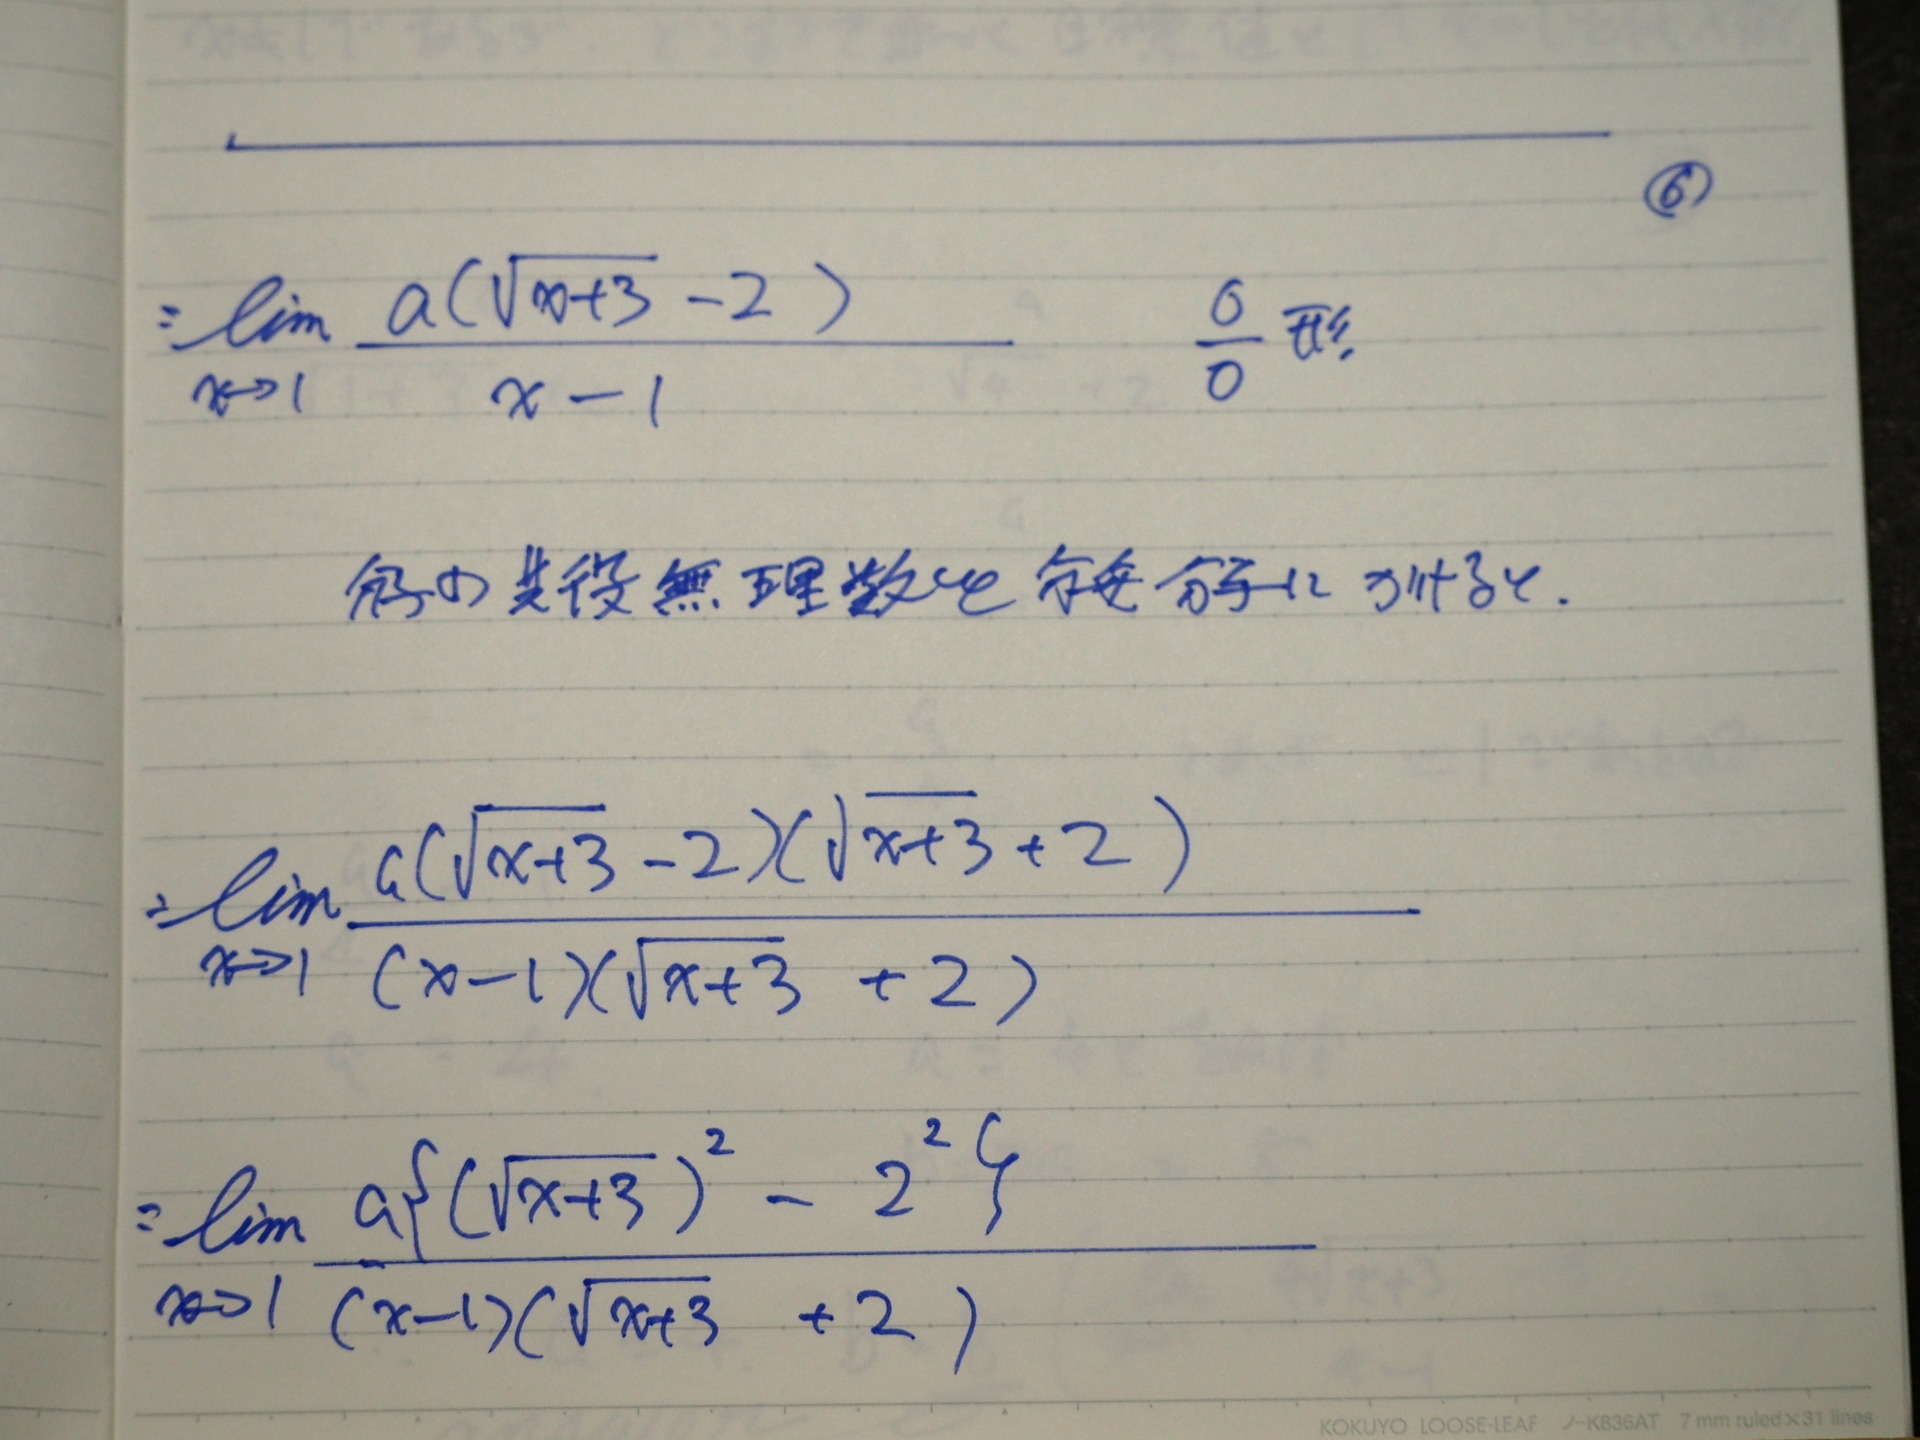 ⑥
= lim a(√x+3 -2) 0/0 形
x→1 x-1
分子の共役無理数を分母分子に掛けると.
= lim a(√x+3 -2)(√x+3 +2)
x→1 (x-1)(√x+3 +2)
= lim a{(√x+3)² - 2²}
x→1 (x-1)(√x+3 +2)
KOKUYO LOOSE-LEAF ノ-K836AT 7 mm ruled×31 lines